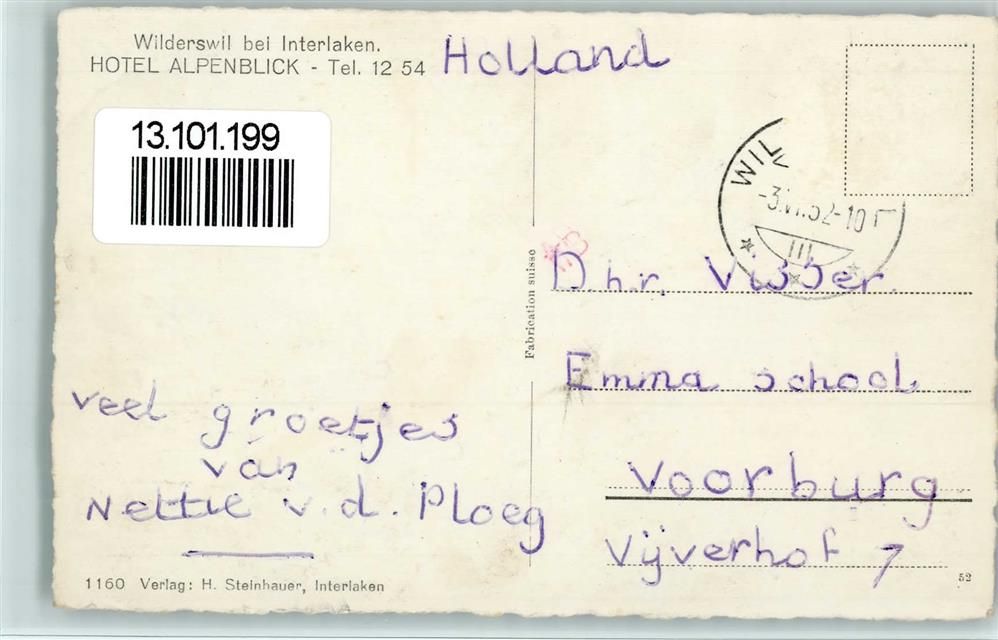 Wilderswil bei Interlaken.
HOTEL ALPENBLICK - Tel. 12 54
Holland
13.101.199
WIL
-3.VI.52-10
III
Fabrication suisse
D.h.r. Visser.
Emma school
Voorburg
Vijverhof 7
veel groetjes
van
Nettie v.d. Ploeg
1160 Verlag: H. Steinhauer, Interlaken
52